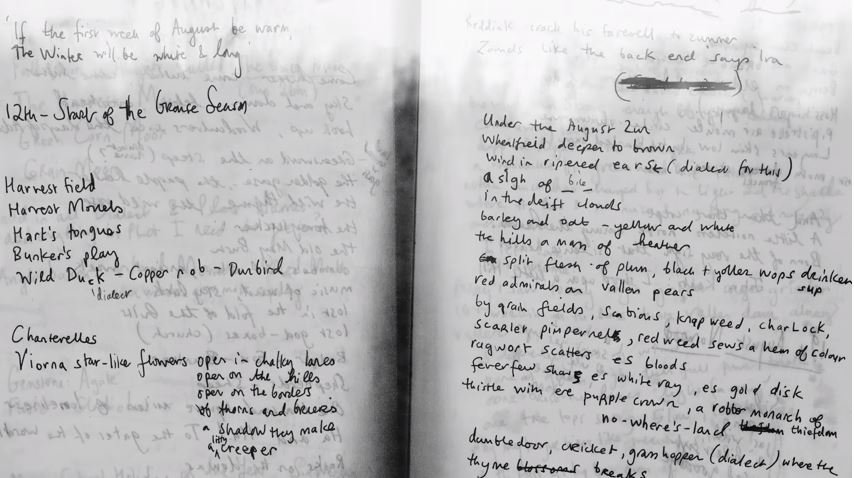 'If the first week of August be warm,
The Winter will be white & long'
12th - Start of the Grouse Season
Harvest Field
Harvest Mouels
Hart's tongues
Bunker's play
Wild Duck - Copper nob - Dunbird
'dialect
Chanterelles
Viorna star-like flowers open in chalky lanes
open on the hills
open on the borders
of thorns and breres
a shadow they make
a litty creeper
crack his farewell to zummer
Zounds like the back end says Ira
Under the August Zun
Wheatfield deepen to brown
Wind in ripened ears (dialect for this)
a sigh of
in the deift clouds
barley and oat - yellow and white
the hills a mass of heather
split flesh of plum, black + yoller wops drinken
sup
red admirals on vallen pears
by grain fields, scabious, knapweed, charlock,
scarlet pimpernels, redweed sews a hem of colour
ragwort scatters es bloods
feverfew shows es white ray, es gold disk
thistle with ere purple crown, a robber monarch of
no-where's-land thiefdom
dumbledoor, cricket, grasshopper (dialect) where the
thyme blossoms breaks